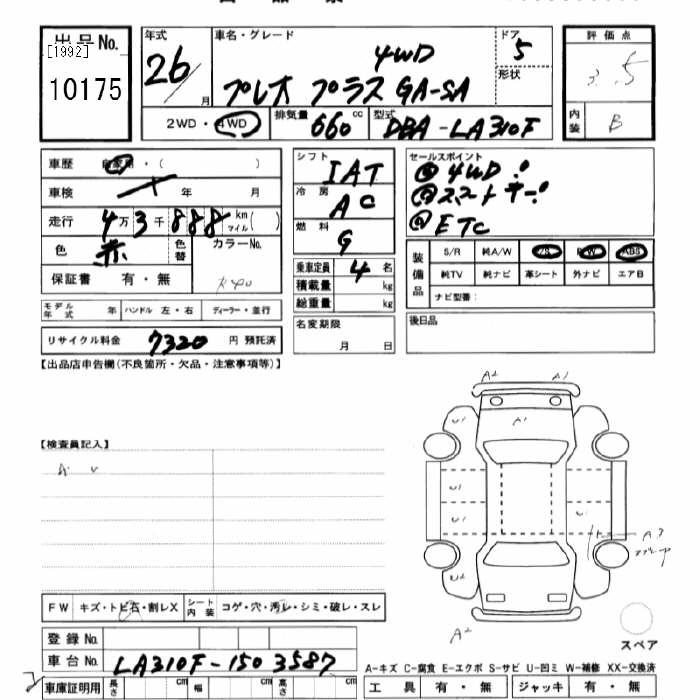 出品No.
[1992]
10175
年式
26/
月
車名・グレード
4WD
プレオ プラス GA-SA
ドア
5
形状
2WD・4WD
排気量
660
cc
型式
DBA-LA310F
評価点
3.5
内装
B
車歴 自家用・( )
車検
年 月
走行
4万3千888
km
マイル
( )
色
赤
色替
カラーNo.
R40
保証書 有・無
モデル年式
年
ハンドル 左・右
ディーラー・並行
リサイクル料金
7320
円 預託済
シフト
IAT
冷房
AC
燃料
G
乗車定員
4
名
積載量
kg
総重量
kg
名変期限
月 日
セールスポイント
@4WD!
@スマートキー!
@ETC
装備品
S/R
純A/W
P/S
P/W
ABS
純TV
純ナビ
革シート
外ナビ
エアB
ナビ型番:
後日品
【出品店申告欄(不良箇所・欠品・注意事項等)】
【検査員記入】
A U
FW
キズ・トビ石・割レX
シート内装
コゲ・穴・汚レ・シミ・破レ・スレ
登録No.
車台No.
LA310F-1503587
車庫証明用
長さ
cm
幅
cm
高さ
cm
A2
A1
U1
A1
U1
U1
U1
U1
A3
U2
A2
スペア
A-キズ C-腐食 E-エクボ S-サビ U-凹ミ W-補修 XX-交換済
工具
有・無
ジャッキ
有・無